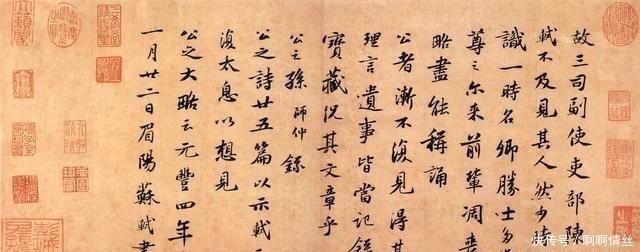 故三司副使吏部陳
軾不及見其人然少時
識一時名卿勝士多
尊之尒来前輩凋喪
略盡能稱誦
公者漸不復見得其
理言遺事皆當記錄
寶藏況其文章乎
公之孫師仲錄
公之詩廿五篇以示軾三
復太息以想見
公之大略云元豐四年
一月廿二日眉陽蘇軾書
快传号/啊啊情丝